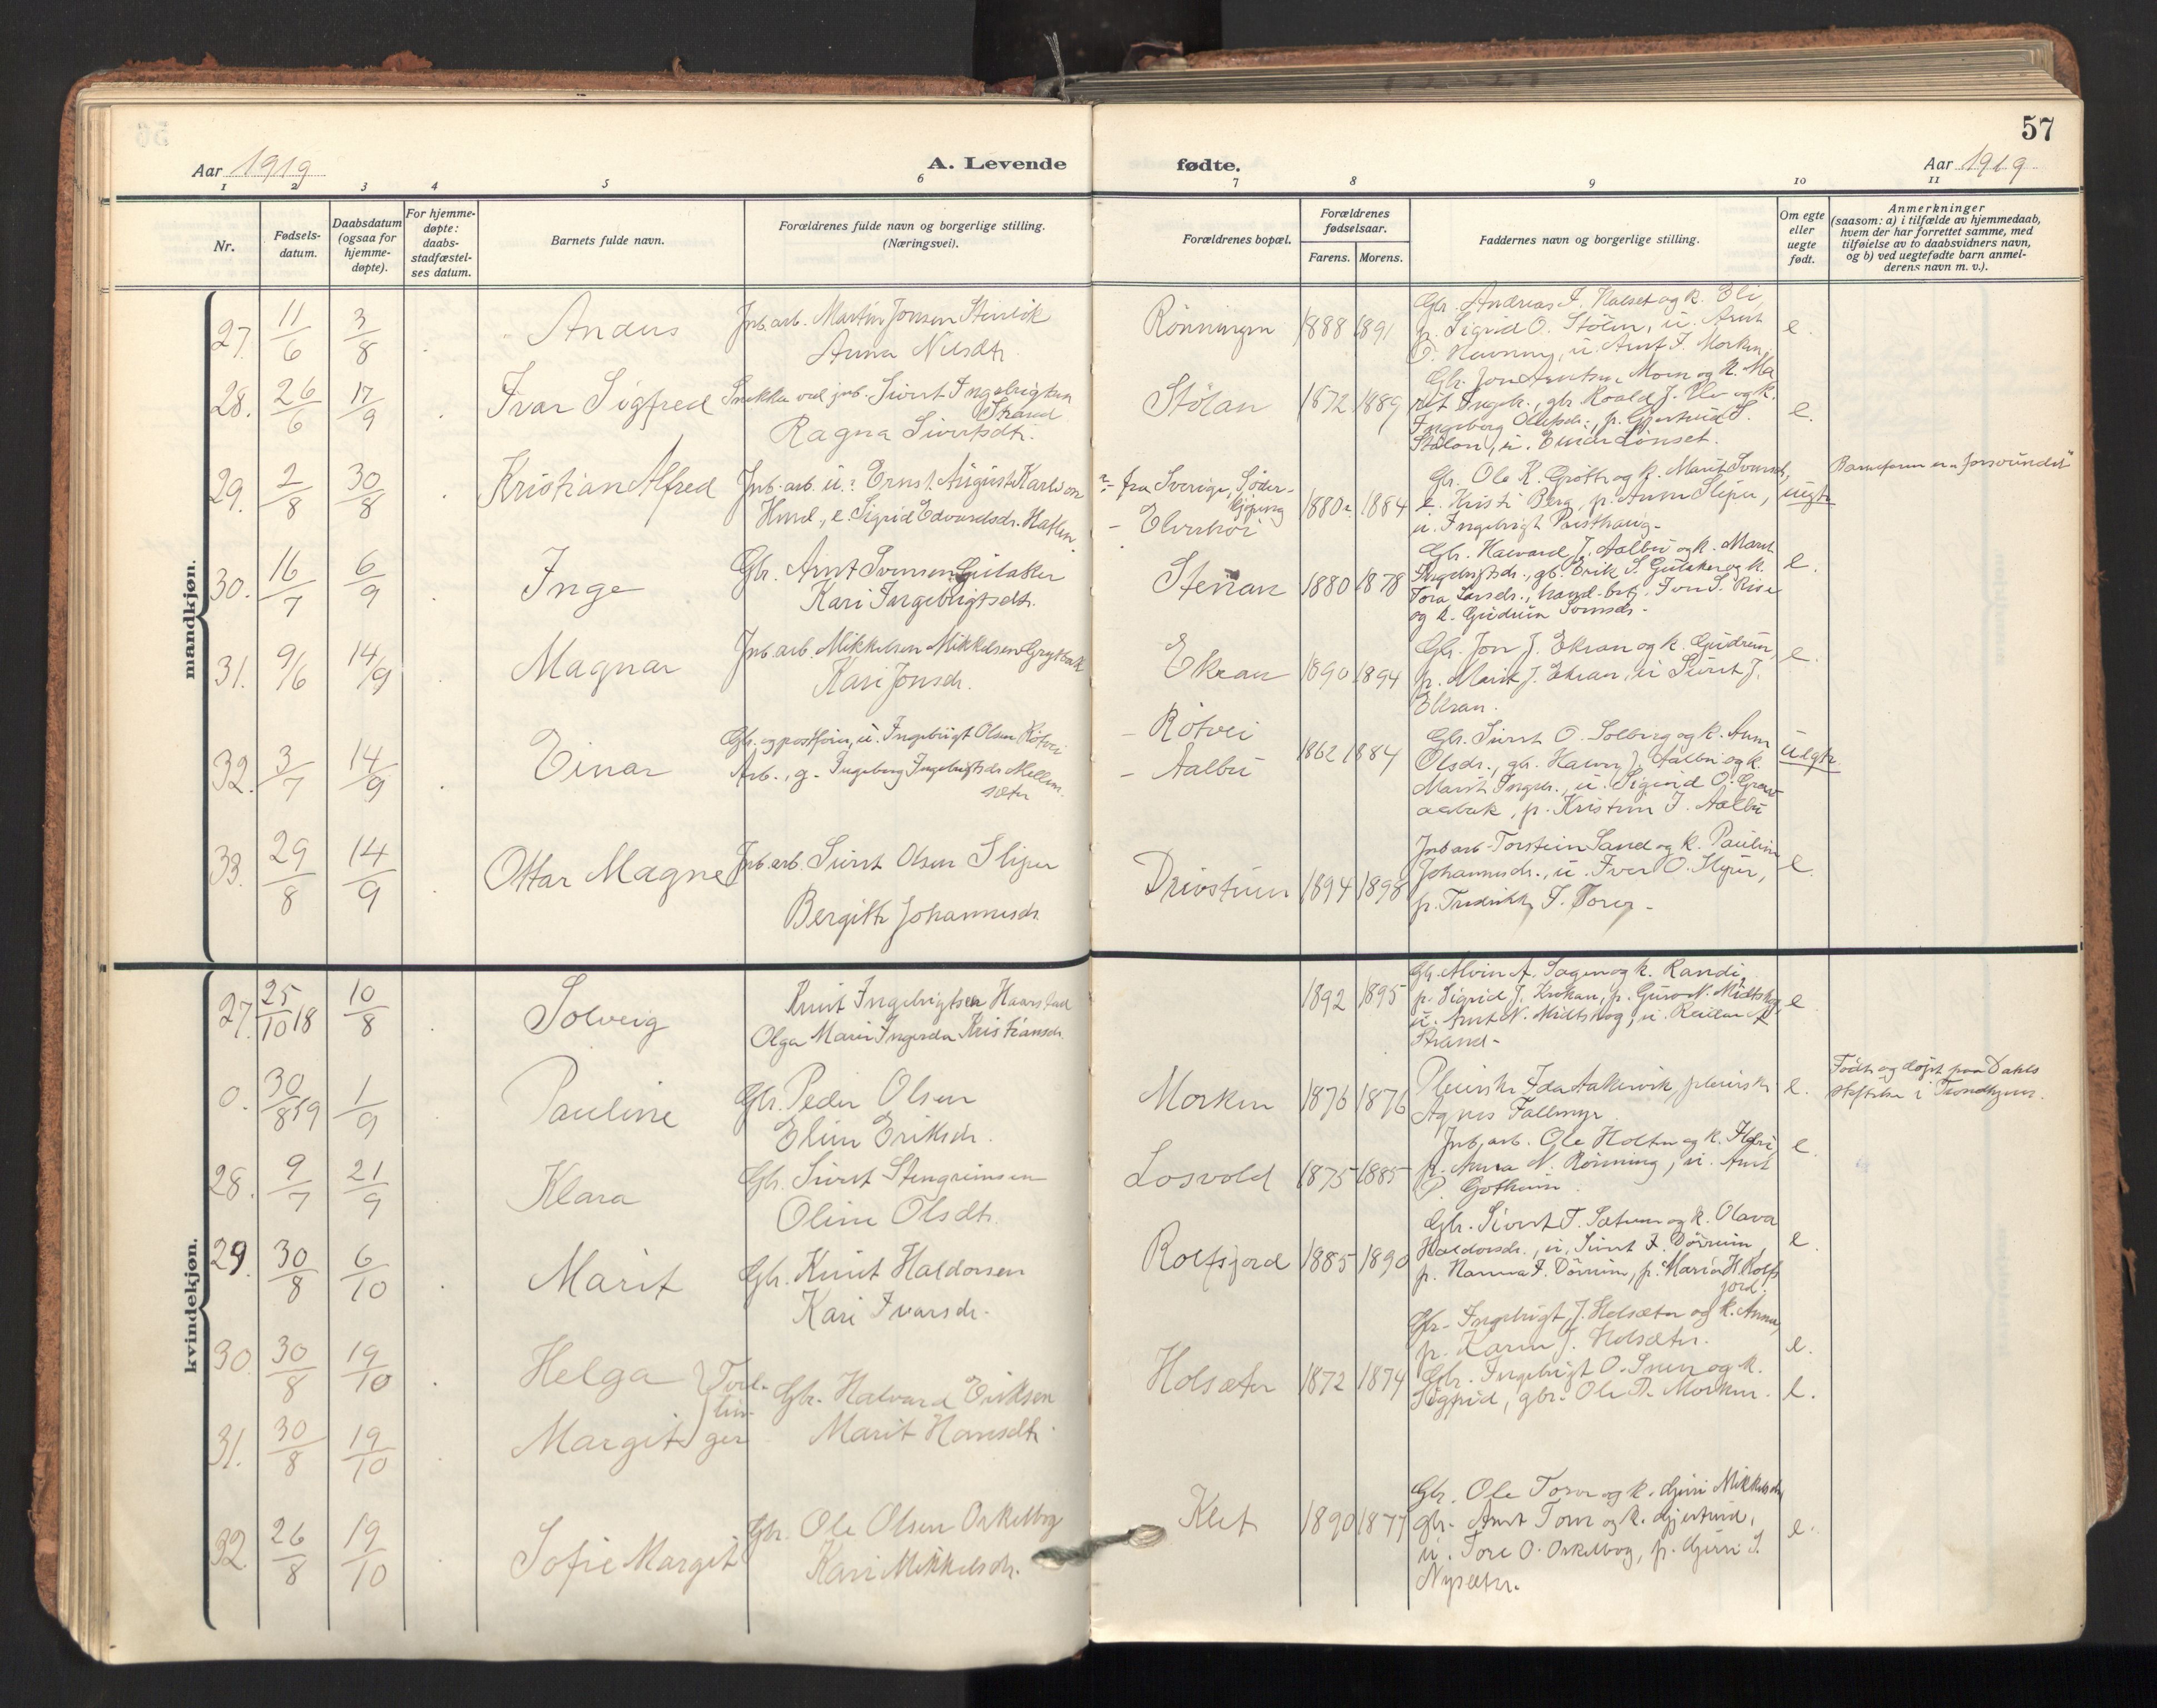 57
Aar 1919
A. Levende
fødte.
Aar 1919
1 2 3 4 5 6 7 8 9 10 11
Nr.
Fødsels-
datum.
Daabsdatum
(ogsaa for
hjemme-
døpte).
For hjemme-
døpte:
daabs-
stadfæstel-
ses datum.
Barnets fulde navn.
Forældrenes fulde navn og borgerlige stilling.
(Næringsvei).
Forældrenes bopæl.
Forældrenes
fødselsaar.
Farens. Morens.
Faddernes navn og borgerlige stilling.
Om egte
eller
uegte
født.
Anmerkninger
(saasom: a) i tilfælde av hjemmedaab,
hvem der har forrettet samme, med
tilføielse av to daabsvidners navn,
og b) ved uegtefødte barn anmel-
derens navn m. v.).
mandkjøn.
27. 11/6 3/8
Anders
Jnb.arb. Martin Jonsen Stenvik
Anna Nilsdtr.
Rönningen 1888 1891
Gbr. Andreas J. Halset og k. Eli,
p. Sigrid O. Stölen, u. Arnt
u. Arnt J. Morken.
e.
28. 26/6 17/9
Ivar Sigfred
Snekker ved jnb. Sivert Ingebrigtsen
Strand
Ragna Sivertsdtr.
Stölan 1872 1889
Gbr. Jon Arntsen Moen og k. Ma
rit Ingebr., gbr. Roald J. og k.
Ingeborg Olufsdr., p. Gjertrud S.
Stölan, u. Einar Lönset.
e.
29. 2/8 30/8
Kristian Alfred
Jnb.arb. u.: Ernst August Karlson
Husd., e. Sigrid Edvardsdr. Haflen
- fra Sverige, Söder-
kjöping
- Elverhöi
1880 1884
Gr. Ole K. Grötte og k. Marit Ivarsd.,
e. Kristi Berg, p. Anne Sliper,
u. Ingebrigt Presthaug -
uegte
Barnefaren er "forsvundet"
30. 16/7 6/9
Inge
Gbr. Arnt Svensen Gulaker
Kari Ingebrigtsdtr.
Stenan 1880 1878
Gbr. Halvard J. Aalbu og k. Marit
Ingebrigtsdr., gb. Erik S. Gulaker og k.
Tora Larsdr., hand.betj. Iver S. Rise
og k. Gudrun -
e.
31. 9/6 14/9
Magnar
Jnb.arb. Mikkelsen Mikkelsen Grytbak
Kari Jonsdr.
Ekran 1890 1894
Gbr. Jon J. Ekran og k. Gudrun,
p. Marit J. Ekran, u Sivert J.
Ekran.
e.
32. 3/7 14/9
Einar
Gbr. og postförer, u. Ingebrigt Olsen Rötvei
Arb., g. Ingeborg Ingebrigtsdr. Mellem-
sæter
- Rötvei
- Aalbu
1862 1884
Gbr. Sivert O. Solberg og k. Anne
Olsdr., gb. Halvor J. Aalbu og k.
Marit Ingebr., u. Sigurd O.
p. Kristine I. Aalbu
uegte
33. 29/8 14/9
Ottar Magne
Jnb.arb. Sivert Olsen Sliper
Bergitte Johannesdr.
Drivstuen 1894 1898
Jnb.arb. Torstein Sand og k. Pauline
Johannesdr., u. Iver O. Sliper,
p. Fredrikke I. Torer -
e.
kvindekjøn.
27. 25/10 18 10/8
Solveig
Knut Ingebrigtsen Haarstad
Olga Marie Ingerda Kristiansdr.
1892 1895
Gbr. Alvin A. Sagen og k. Randi,
p. Sigrid J. Krokan, p. Guro N. Midtskog,
u. Arnt N. Midtskog, u. Reidar A
Strand -
e
0. 30/8 19 1/9
Pauline
Gbr. Peder Olsen
Eline Eriksdr.
Morken 1876 1876
Pleierske Ida Aakervik, pleierske
Agnes Fallmyr
e.
Födt og döpt paa Dahls
stiftelse i Trondhjem.
28. 9/7 21/9
Klara
Gbr. Sivert Stengrimsen
Oline Olsdtr.
Losvold 1875 1885
Jnb.arb. Ole Holten og k.
p. Anna N. Rönning, u. Arnt
P. Gotheim.
e.
29. 30/8 6/10
Marit
Gbr. Knut Haldorsen
Kari Ivarsdr.
Rolfsjord 1885 1890
Gbr. Sivert T. Sætrum og k. Olava
Haldorsdr., u. Sivert I. Dörrum,
p. Hanna I. Dörrum, p. Maria H. Rolfs
jord.
e.
30. 30/8 19/10
Helga
31. 30/8 19/10
Margit
Tvil-
lin-
ger
Gbr. Halvard Eriksen
Marit Hansdtr.
Holsæter 1872 1874
Gbr. Ingebrigt J. Holsæter og k. Anna,
p. Karen J. Holsæter.
Gbr. Ingebrigt O. Snen og k.
Sigrid, gbr. Ole P. Morken.
e.
e.
32. 26/8 19/10
Sofie Margit
Gbr. Ole Olsen Orkelbog
Kari Mikkelsdr.
Klet 1890 1877
Gbr. Ole Torer og k. Guri Mikkelsdr.
gbr. Arnt Torer og k. Gjertrud,
u. Tore O. Orkelbog, p. Guri S.
Nysæter.
e.